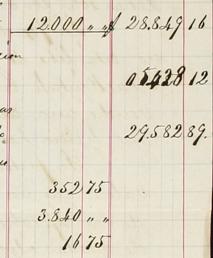 12.000 " " 28.849 16
12
29.582 89.
352 75
3.840 " "
16 75